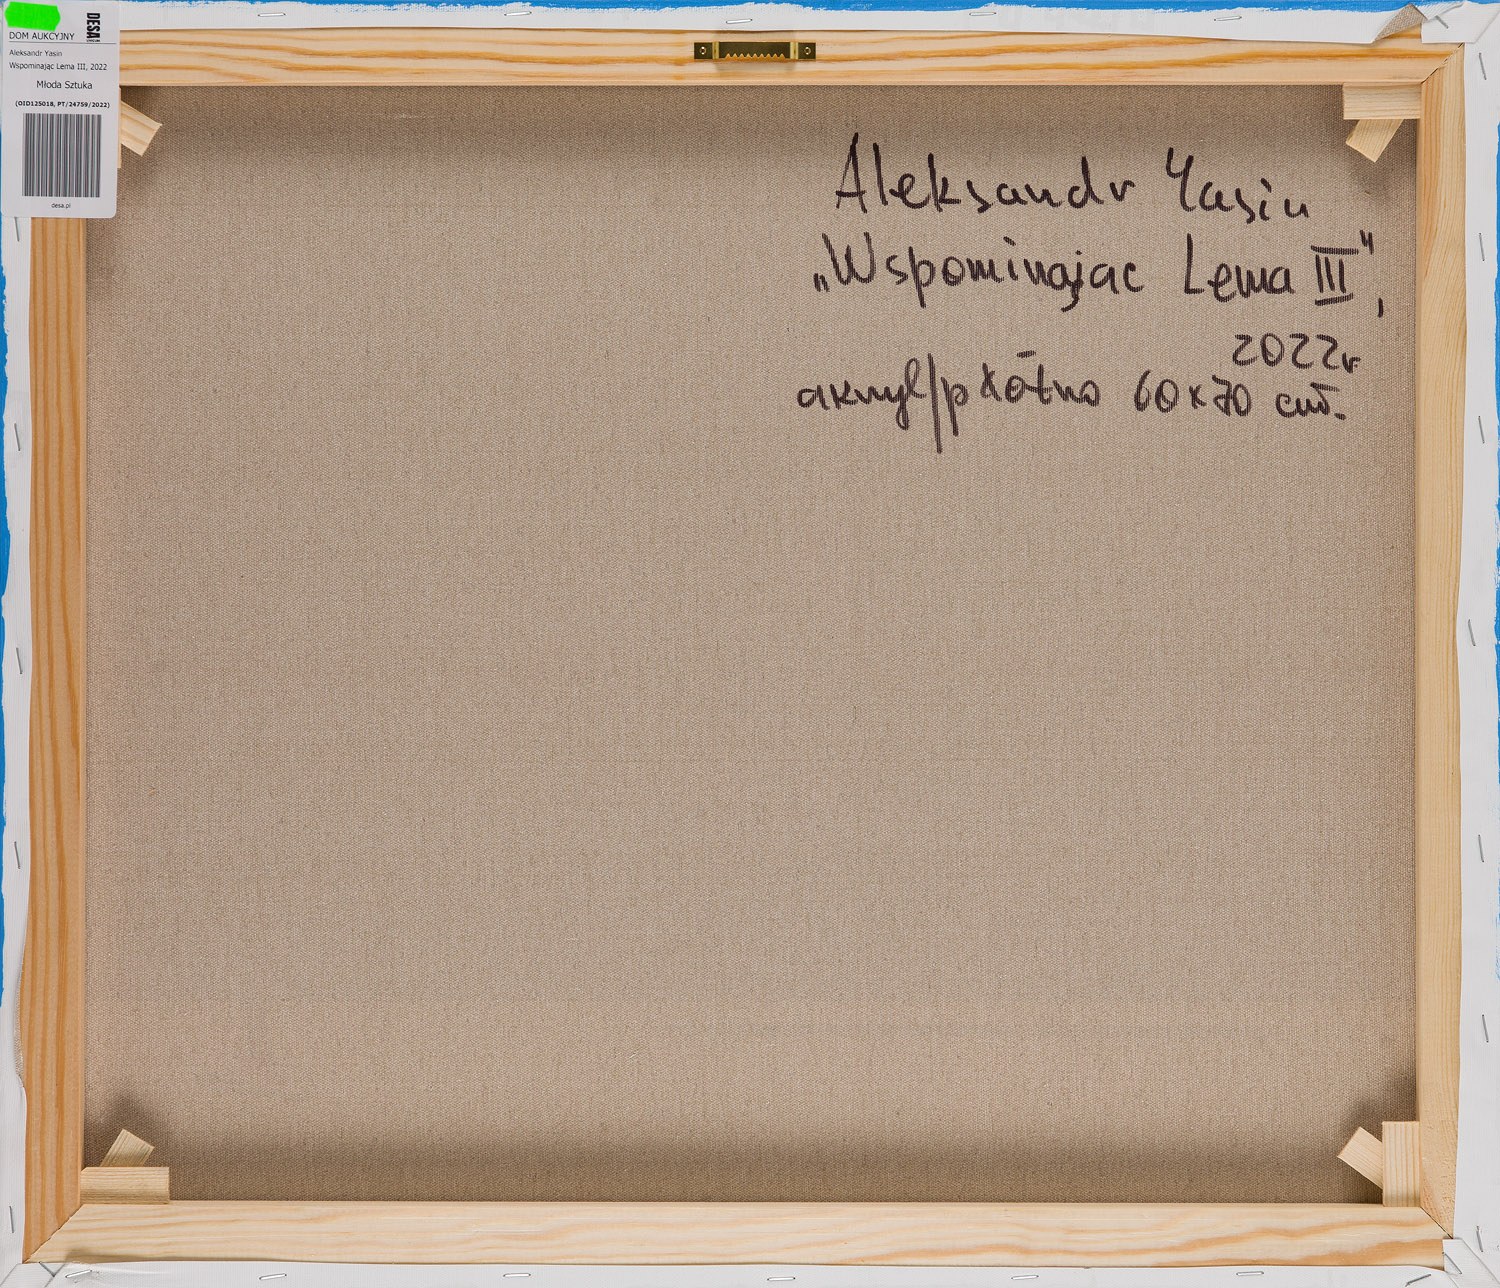 DESA
DOM AUKCYJNY
Aleksandr Yasin
Wspominając Lema III, 2022
Młoda Sztuka
(OID125018, PT/24759/2022)
desa.pl
Aleksandr Yasin
„Wspominając Lema III",
2022r
akryl/płótno 60x70 cm.